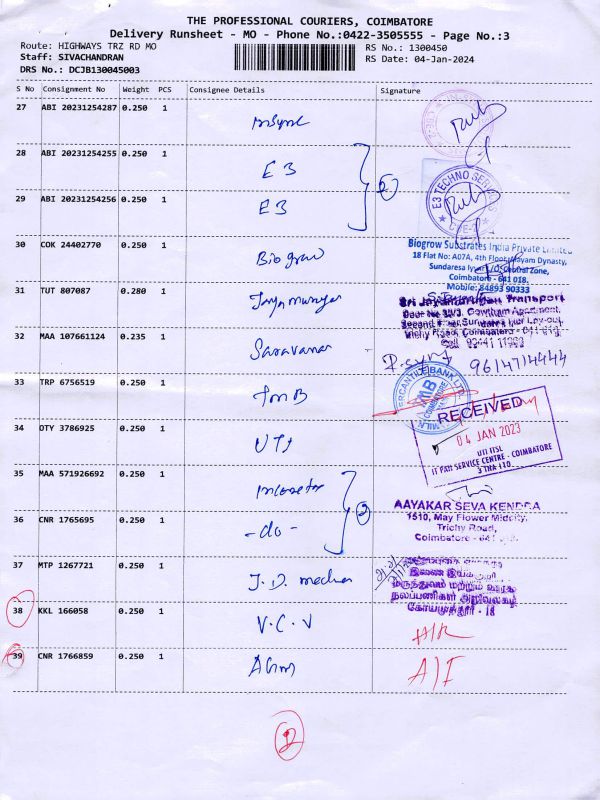 THE PROFESSIONAL COURIERS, COIMBATORE
Delivery Runsheet - MO - Phone No.:0422-3505555 - Page No.:3
Route: HIGHWAYS TRZ RD MO
RS No.: 1300450
Staff: SIVACHANDRAN
RS Date: 04-Jan-2024
DRS No.: DCJB130045003
S No Consignment No Weight PCS Consignee Details Signature
27 ABI 20231254287 0.250 1
28 ABI 20231254255 0.250 1 E3
29 ABI 20231254256 0.250 1 E3
E3 TECHNO SERVICES
30 COK 24402770 0.250 1 Bio grow
Biogrow Substrates India Private Limited
18 Flat No: A07A, 4th Floor, Mayam Dynasty,
Sundaresa Iyer Zone,
Coimbatore - 641 018.
Mobile: 84893 90333
31 TUT 807087 0.280 1 Jayamurugan
Sri Jayamurugan Transport
Second Floor,
Trichy Road, Coimbatore
32 MAA 107661124 0.235 1 Saravana
9614714444
33 TRP 6756519 0.250 1 TMB
MERCANTILE BANK LTD
COIMBATORE
34 OTY 3786925 0.250 1 UTI
RECEIVED
04 JAN 2023
UTI ITSL
IT PAN SERVICE CENTRE - COIMBATORE
35 MAA 571926692 0.250 1
2
36 CNR 1765695 0.250 1 -do-
AAYAKAR SEVA KENDRA
1510, May Flower Midcity,
Trichy Road,
Coimbatore - 641
37 MTP 1267721 0.250 1 J.D.
மருத்துவம் மற்றும் ஊரக
நலப்பணிகள் அலுவலகம்
கோயமுத்தூர் - 18
38 KKL 166058 0.250 1 V.C.V
39 CNR 1766859 0.250 1
A/I
2